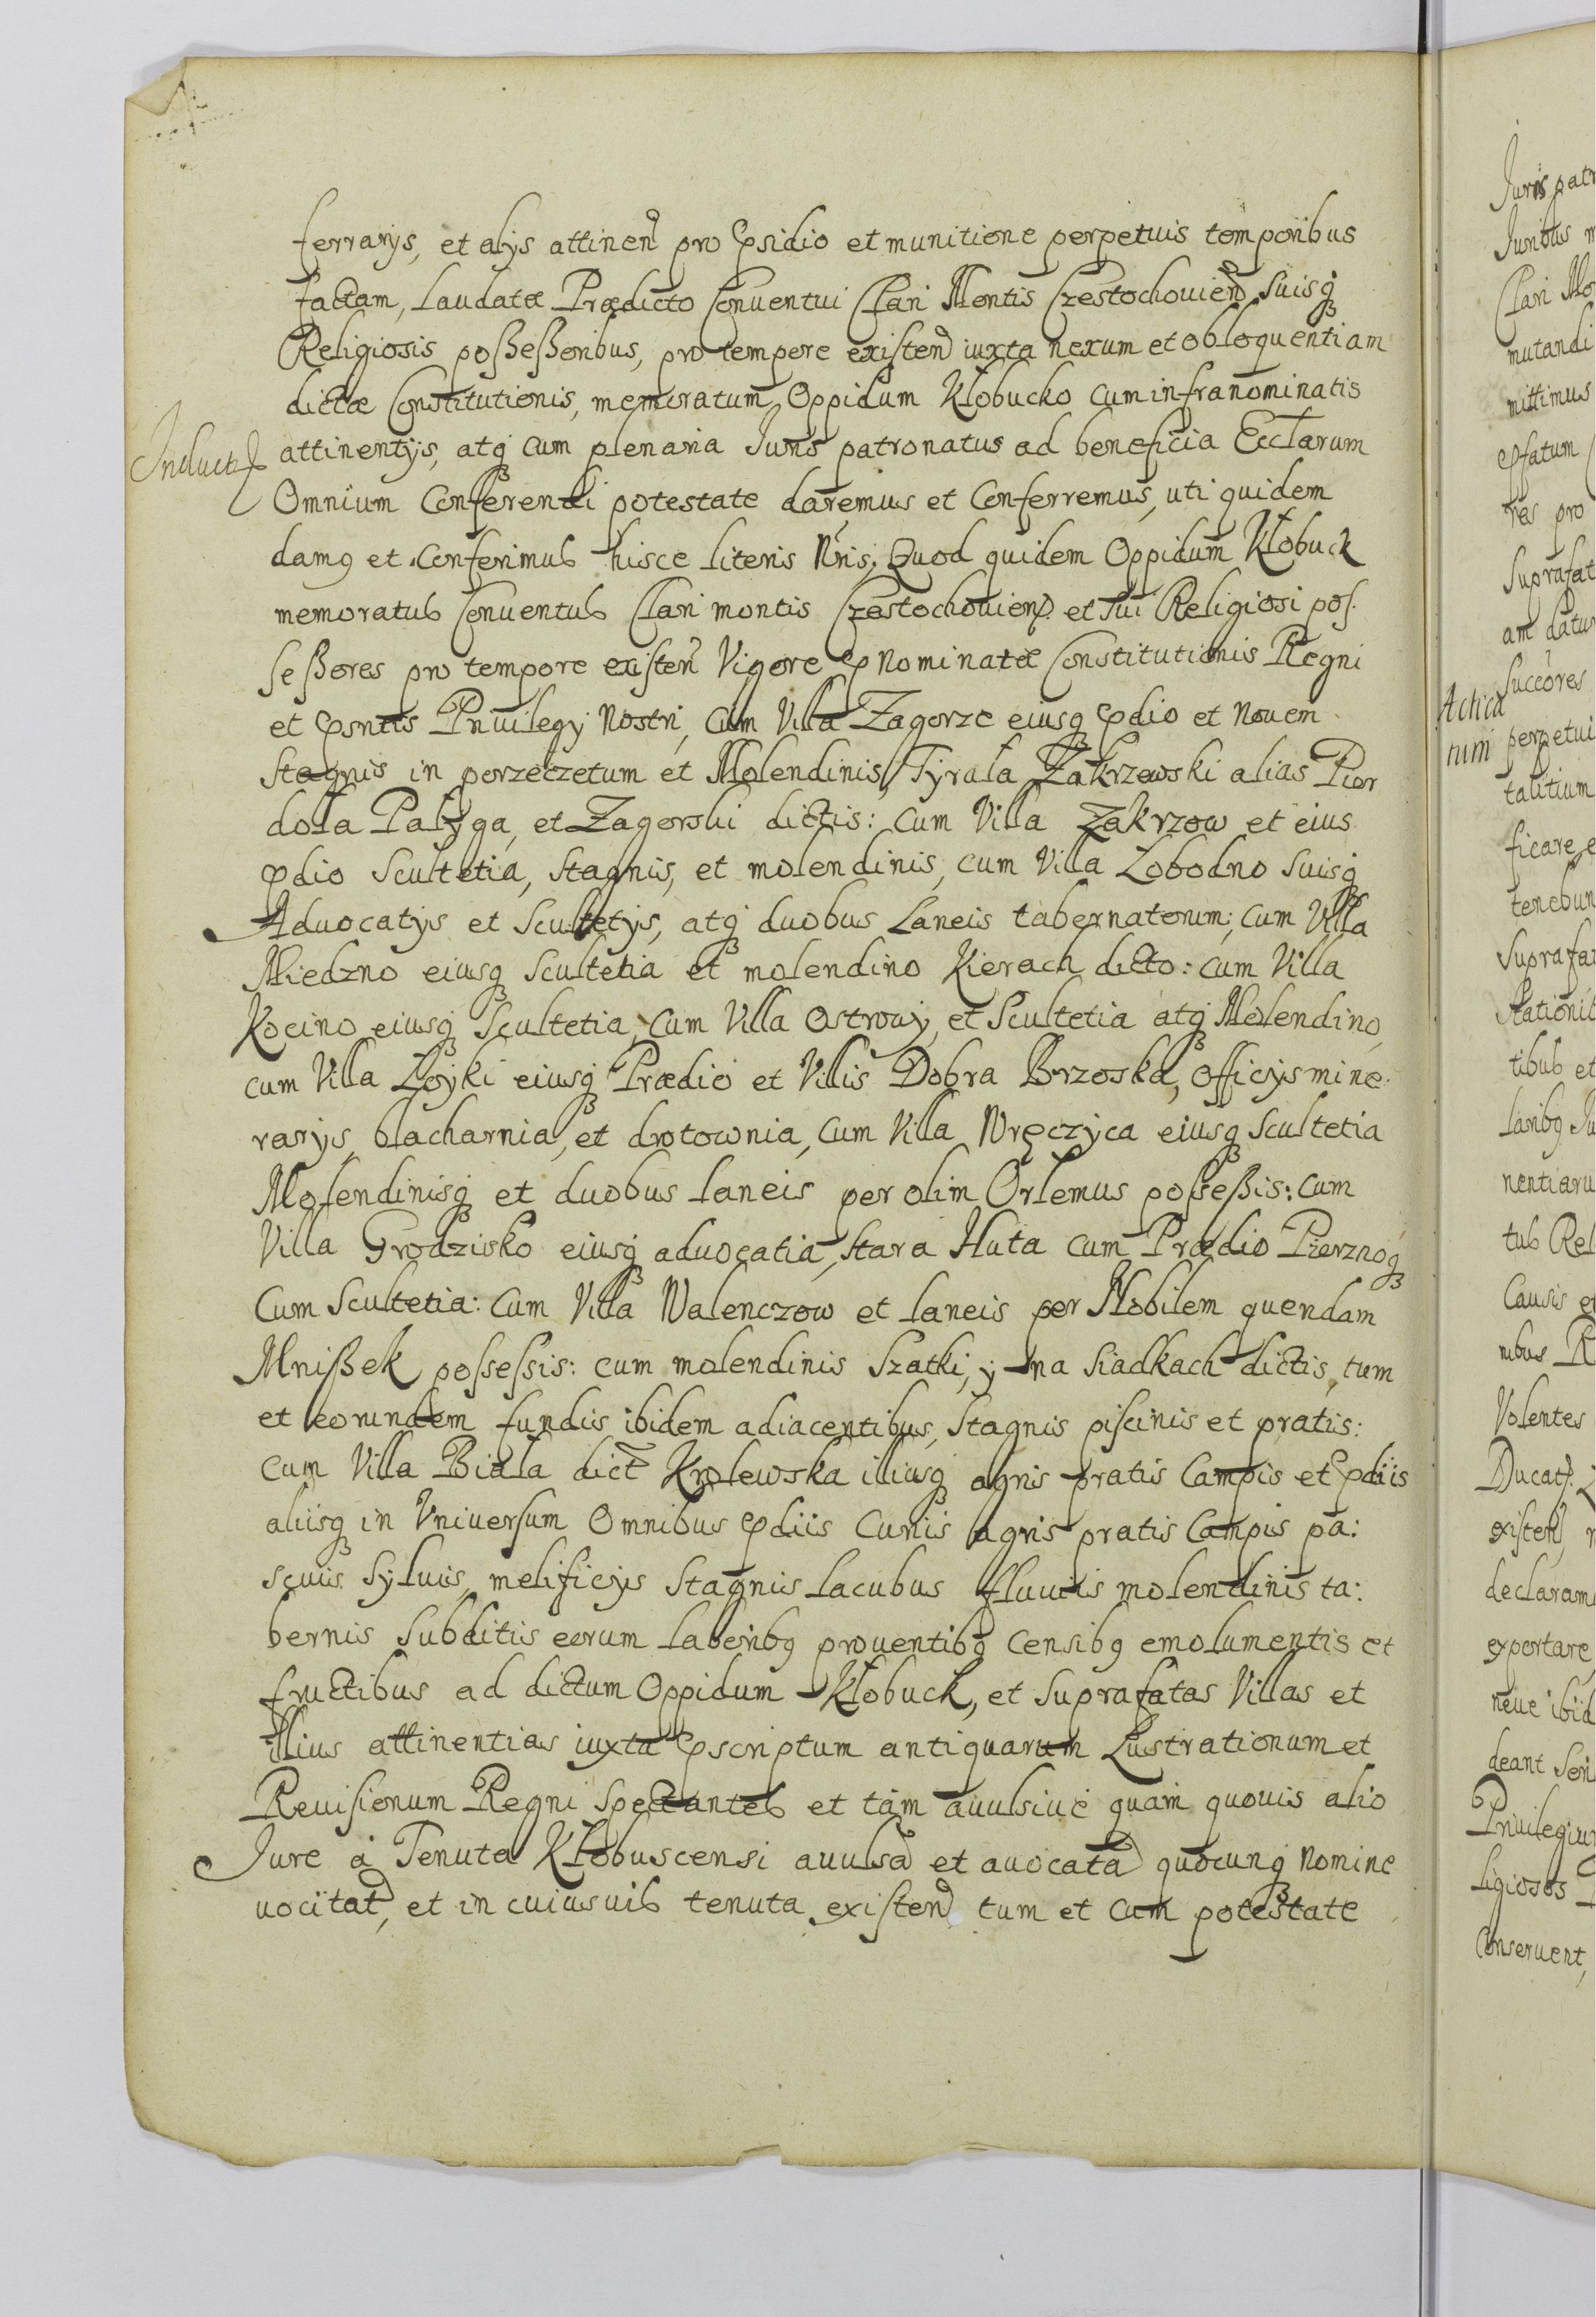 ferrarijs, et alijs attinen pro psidio et munitione perpetuis temporibus
factam, laudatæ Prædicto Conuentui Clari Montis Czestochouien Suisq
Religiosis poßeßoribus, pro tempore existen iuxta nexum et obloquentiam
dictæ Constitutionis, memoratum Oppidum Kłobucko cum infranominatis
Induct
attinentijs, atq cum plenaria Juris patronatus ad beneficia Ecclarum
Omnium Conferendi potestate daremus et Conferremus, uti quidem
damq et Conferimus hisce literis Nris; Quod quidem Oppidum Kłobuck
memoratus Conuentus Clari montis Czestochouien et sui Religiosi pos.
seßores pro tempore existen Vigore pnominatæ Constitutionis Regni
et psntis Priuilegij Nostri, cum Villa Zagorze eiusq pdio et Nouem
Stagnis in porzeczetum et Molendinis, Tyrała Zakrzewski alias Pier
doła Pałyga, et Zagorski dictis: cum Villa Zakrzow et eius
pdio Scultetia, Stagnis, et molendinis, cum Villa Łobodno Suisq
Aduocatijs et Scultetijs, atq duobus Laneis tabernatorum; cum Villa
Miedzno eiusq Scultetia et molendino Kierach dicto: cum Villa
Kocino eiusq Scultetia, cum Villa Ostrowy, et Scultetia atq Molendino,
cum Villa Łoyki eiusq Prædio et Villis Dobra Brzoska, officijs mine.
rarijs, blacharnia, et drotownia, cum Villa Wręczyca eiusq Scultetia
Molendinisq et duobus laneis per olim Orlemus poßeßis: cum
Villa Grodzisko eiusq aduocatia, Stara Huta cum Prædio Pierznoq
Cum Scultetia: Cum Villa Walenczow et laneis per Nobilem quendam
Mnißek possessis: cum molendinis Szatki, y na Siadkach dictis, tum
et eorundem fundis ibidem adiacentibus, Stagnis piscinis et pratis:
cum Villa Biała dict Krolewska illiusq agris pratis Campis et pdiis
aliisq in Vniuersum Omnibus pdiis Curiis agris pratis Campis pa:
scuis Syluis, melificijs Stagnis lacubus fluuiis molendinis ta:
bernis Subditis eorum laboribq prouentibq Censibq emolumentis et
fructibus ad dictum Oppidum Kłobuck, et Suprafatas Villas et
illius attinentias iuxta pscriptum antiquarum Lustrationum et
Reuisionum Regni Spectantes et tam auulsiue quam quouis alio
Jure à Tenuta Kłobuscensi auulsa et auocata quocunq nomine
uocitat, et in cuiusuis tenuta existen tum et cum potestate
Juris patr
Juribus m
Clari Mo
mutandi
mittimus
pfatum
res pro
Suprafat
am datur
Succores
Actica
tum
perpetui
talitium
ficare e
tenebun
Suprafat
Stationib
tibus et
laribq Ju
nentiaru
tus Rel
Causis et
nibus R
Volentes
Ducat
existen
declaram
exportare
neue ibid
deant Seri
Priuilegiu
ligiosos
Conseruent,